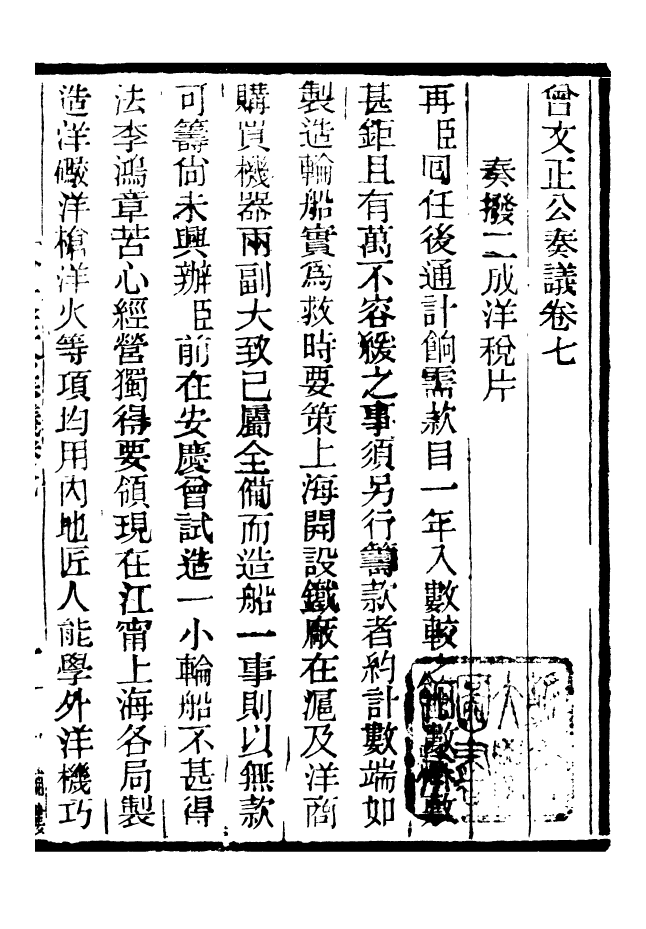 曾文正公奏議卷七
奏撥二成洋稅片
再臣回任後通計餉需款目一年入數較之數
甚鉅且有萬不容緩之事須另行籌款者約計數端如
製造輪船實為救時要策上海開設鐵廠在滬及洋商
購買機器兩副大致已屬全備而造船一事則以無款
可籌尙未興辦臣前在安慶曾試造一小輪船不甚得
法李鴻章苦心經營獨得要領現在江甯上海各局製
造洋礮洋槍洋火等項均用內地匠人能學外洋機巧